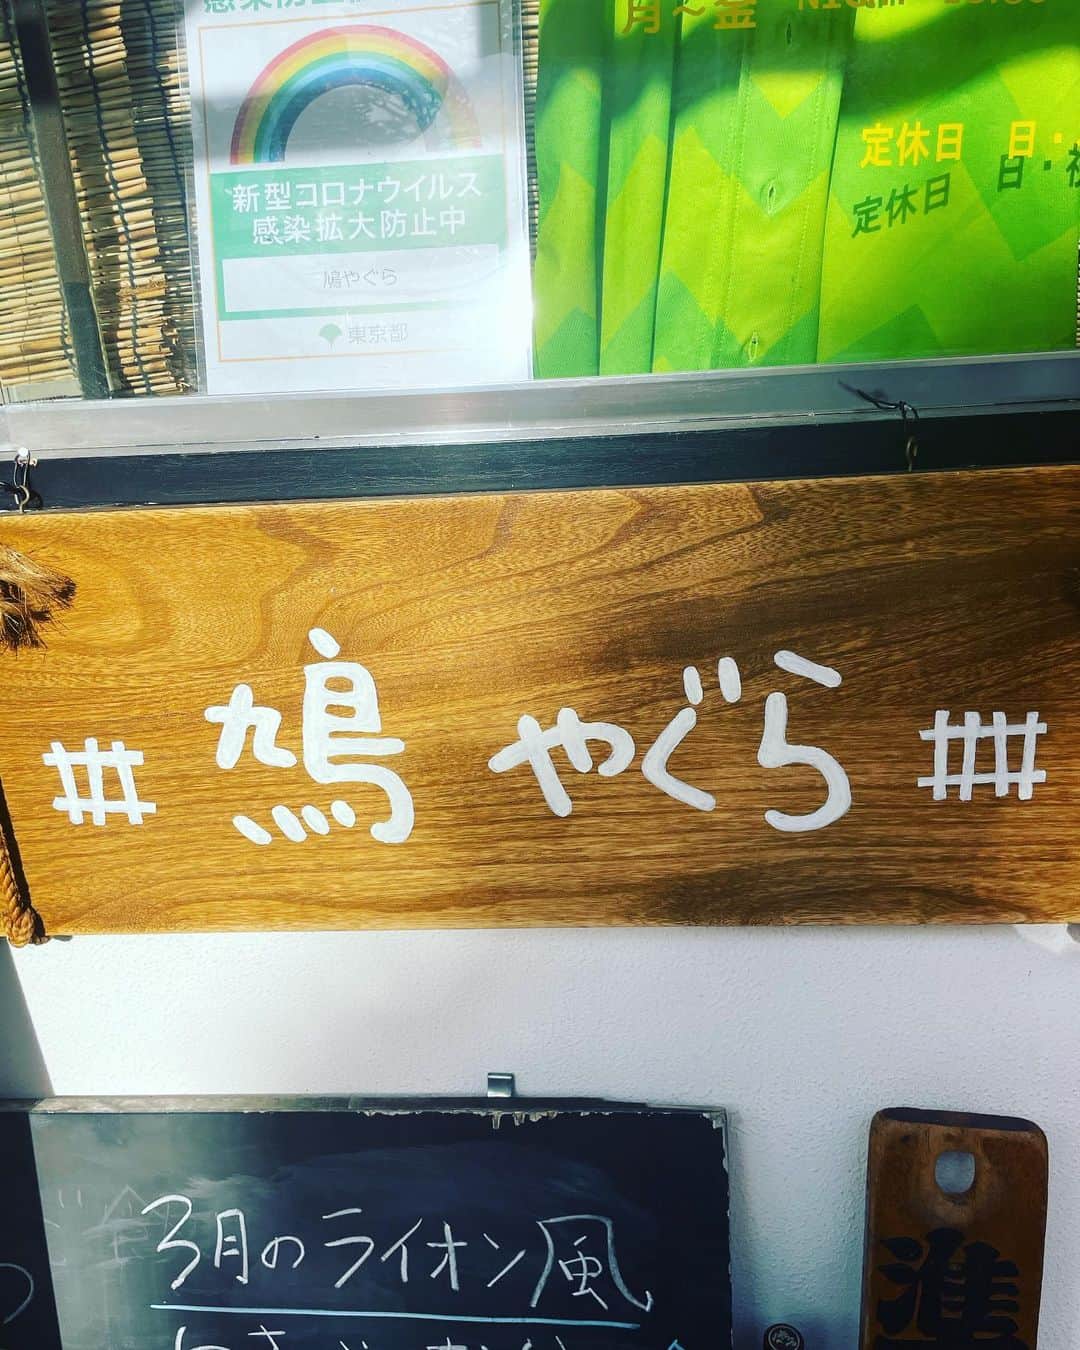 新型コロナウイルス
感染拡大防止中
鳩やぐら
東京都
月～金
定休日 日・
定休日 日・祝
鳩やぐら
3月のライオン風
準